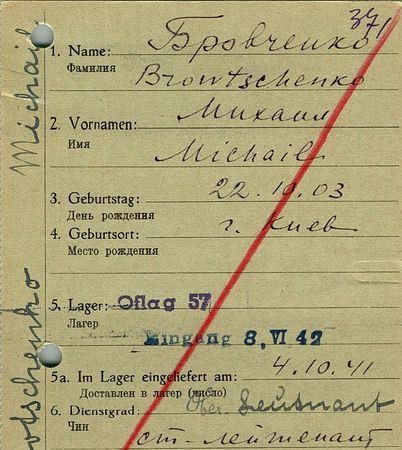 371
1. Name: Бровченко
Фамилия Browtschenko
Михаил
2. Vornamen:
Имя Michail
3. Geburtstag: 22.10.03
День рождения
4. Geburtsort: г. Киев
Место рождения
5. Lager: Oflag 57
Лагер
Eingang 8. VI 42
5a. Im Lager eingeliefert am: 4.10.41
Доставлен в лагер (число)
6. Dienstgrad: Ober. Leutnant
Чин ст-лейтенант
Michail